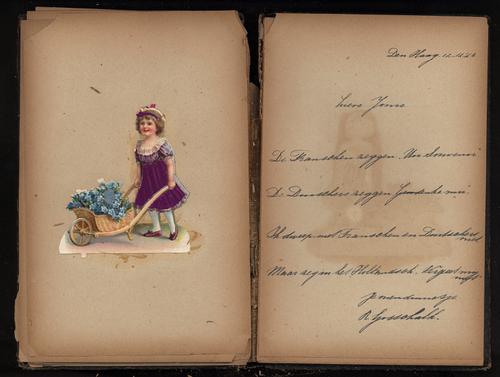 Den Haag
Lieve
De Franschen zeggen. Un Souvenir
De Duitschers zeggen Gedenke mei
Ik dweep met Franschen en Duitschers niet
Maar zeg in het Hollandsch. Vergeet mij niet
je vriendinnetje
R. Gosschalk.